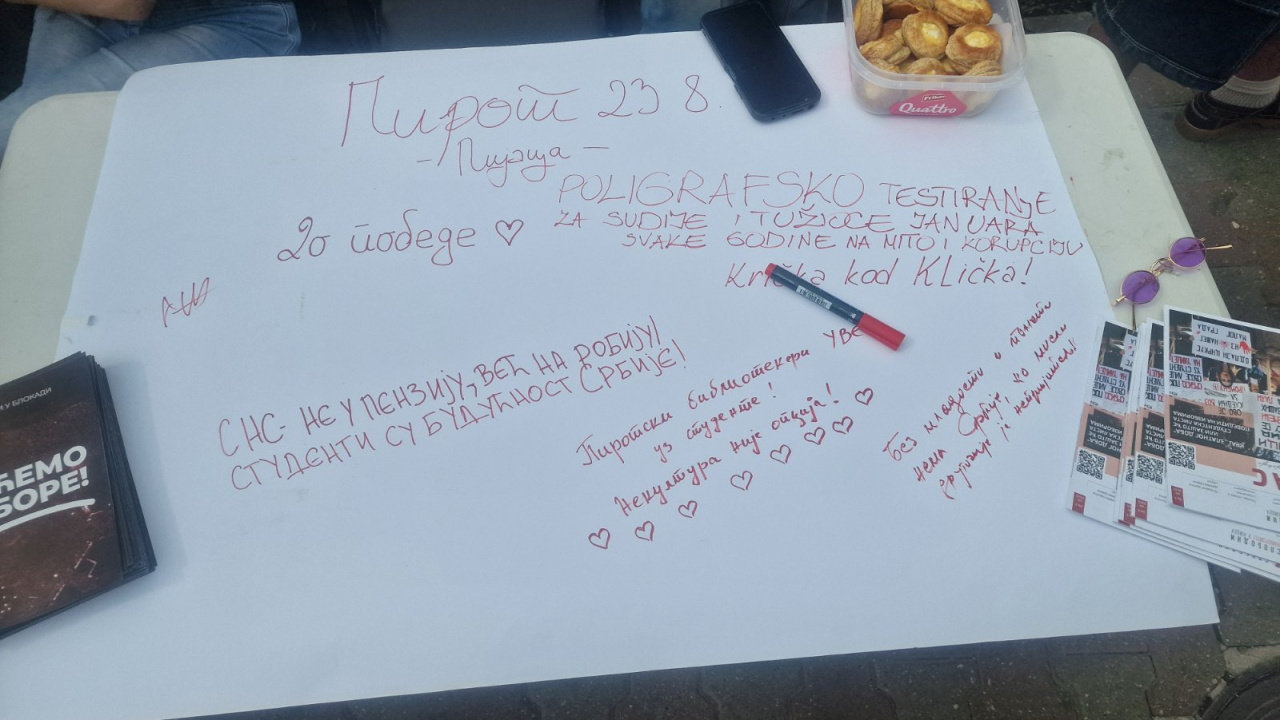 Пирот 23 8.
- Пијаца -
POLIGRAFSKO TESTIRANJE
ZA SUDIJE I TUŽIOCE JANUARA
SVAKE GODINE NA MITO I KORUPCIJU
Krička kod Klička!
До победе ♡
СНС - НЕ У ПЕНЗИЈУ, ВЕЋ НА РОБИЈУ!
СТУДЕНТИ СУ БУДУЋНОСТ СРБИЈЕ!
Пиротски библиотекари УВЕ
уз студенте!
Некултура није опција!
♡ ♡ ♡ ♡ ♡ ♡ ♡ ♡
Без младости и памети
нема Србије, ко мисли
другачије је непријатељ!
Quattro
У БЛОКАДИ
ЋЕМО
БОРЕ!